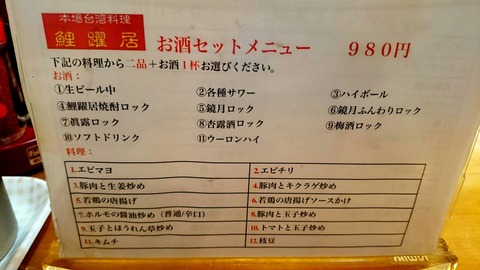 本場台湾料理
鯉躍居
お酒セットメニュー 980円
下記の料理から二品+お酒1杯お選びください。
お酒:
①生ビール中 ②各種サワー ③ハイボール
④鯉躍居焼酎ロック ⑤鏡月ロック ⑥鏡月ふんわりロック
⑦眞露ロック ⑧杏露酒ロック ⑨梅酒ロック
⑩ソフトドリンク ⑪ウーロンハイ
料理:
1.エビマヨ 2.エビチリ
3.豚肉と生姜炒め 4.豚肉とキクラゲ炒め
5.若鶏の唐揚げ 6.若鶏の唐揚げソースかけ
7.ホルモの醤油炒め(普通/辛口) 8.豚肉と玉子炒め
9.玉子とほうれん草炒め 10.トマトと玉子炒め
11.キムチ 12.枝豆